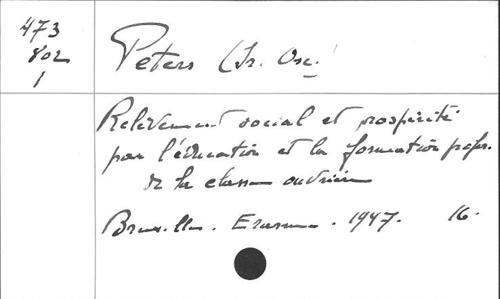 473
802
1
Peters (Fr. Osc.)
Relèvement social et prospérité
par l'éducation et la formation profes.
de la classe ouvrière
Bruxelles. Erasme. 1947. 16.